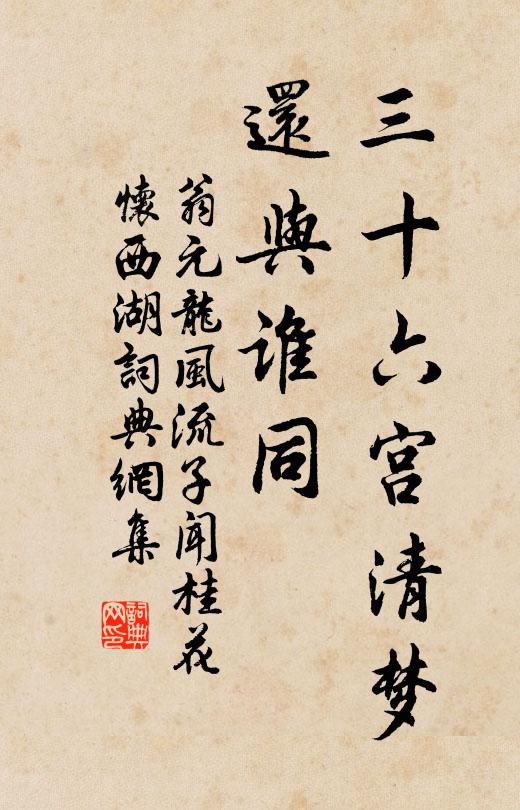 三十六宫清梦
還與誰同
翁元龍風流子聞桂花
懷西湖詞典網集
詞典
网印